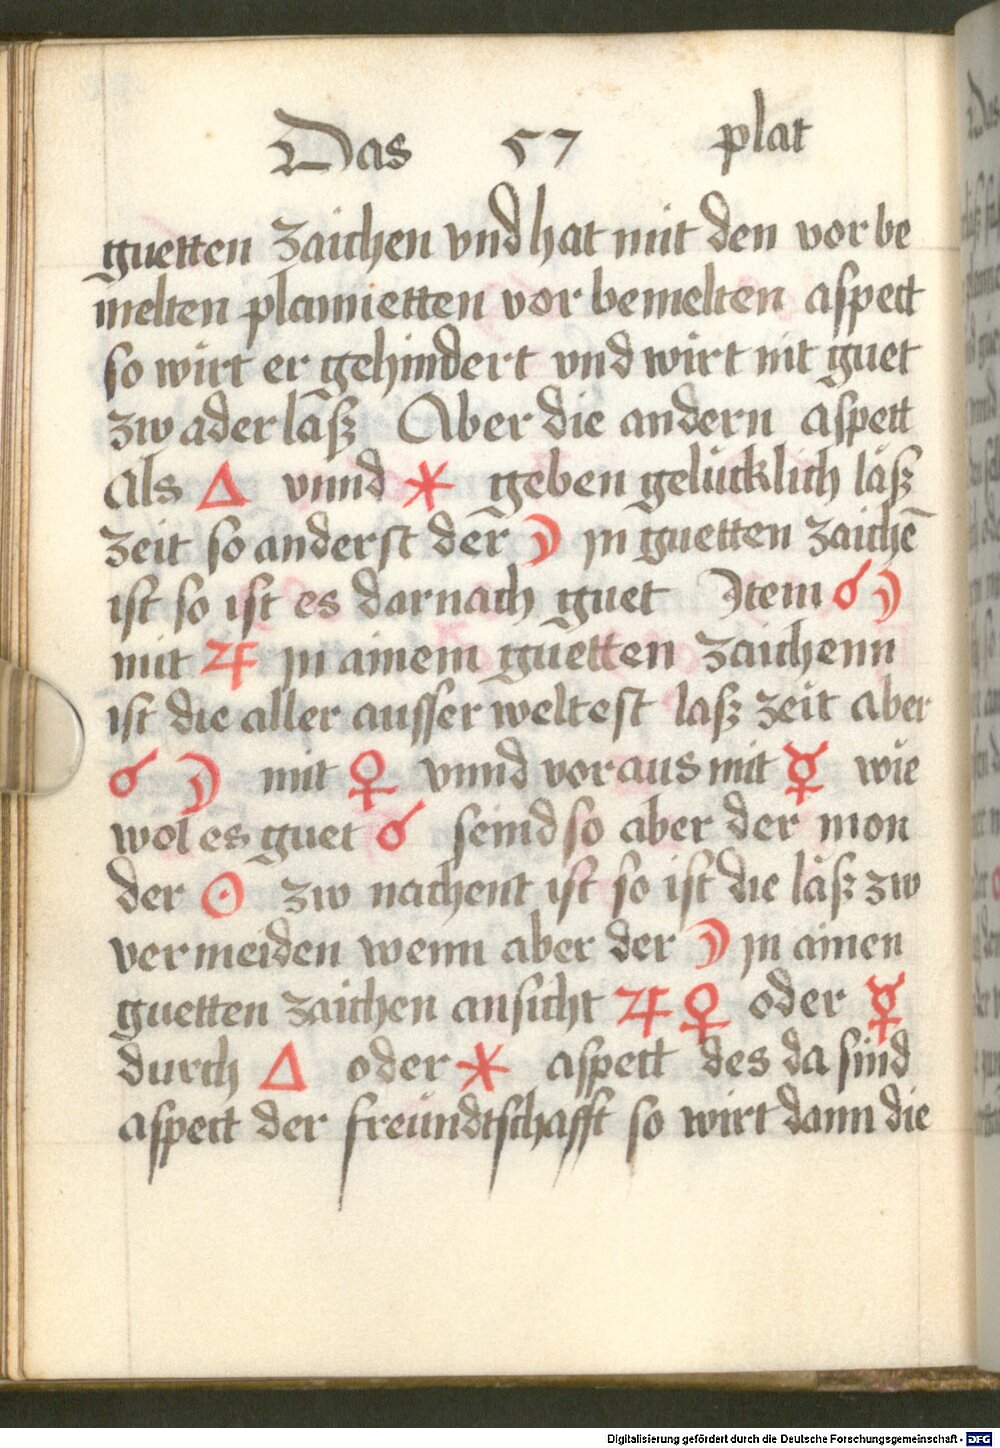 Das 57 plat
guetten zaichen vnd hat mit den vor be
melten plannietten vor bemelten aspect
so wirt er gehindert vnd wirt nit guet
zw ader lasz Aber die andern aspect
als △ vnnd ⚹ geben gelücklich läsz
zeit so anderst der ☽ jn guetten zaichē
ist so ist es darnach guet Jtem ☌ ☽
mit ♃ jn ainem guetten zaichenn
ist die aller ausser weltest lasz zeit aber
☌ ☽ mit ♀ vnnd vor aus mit ☿ wie
wol es guet ☌ seind so aber der mon
der ☉ zw nachent ist so ist die läsz zw
vermeiden wenn aber der ☽ jn ainen
guetten zaichen ansicht ♃ ♀ oder ☿
durch △ oder ⚹ aspect des da sind
aspect der freündtschafft so wirt dann die
Digitalisierung gefördert durch die Deutsche Forschungsgemeinschaft - DFG